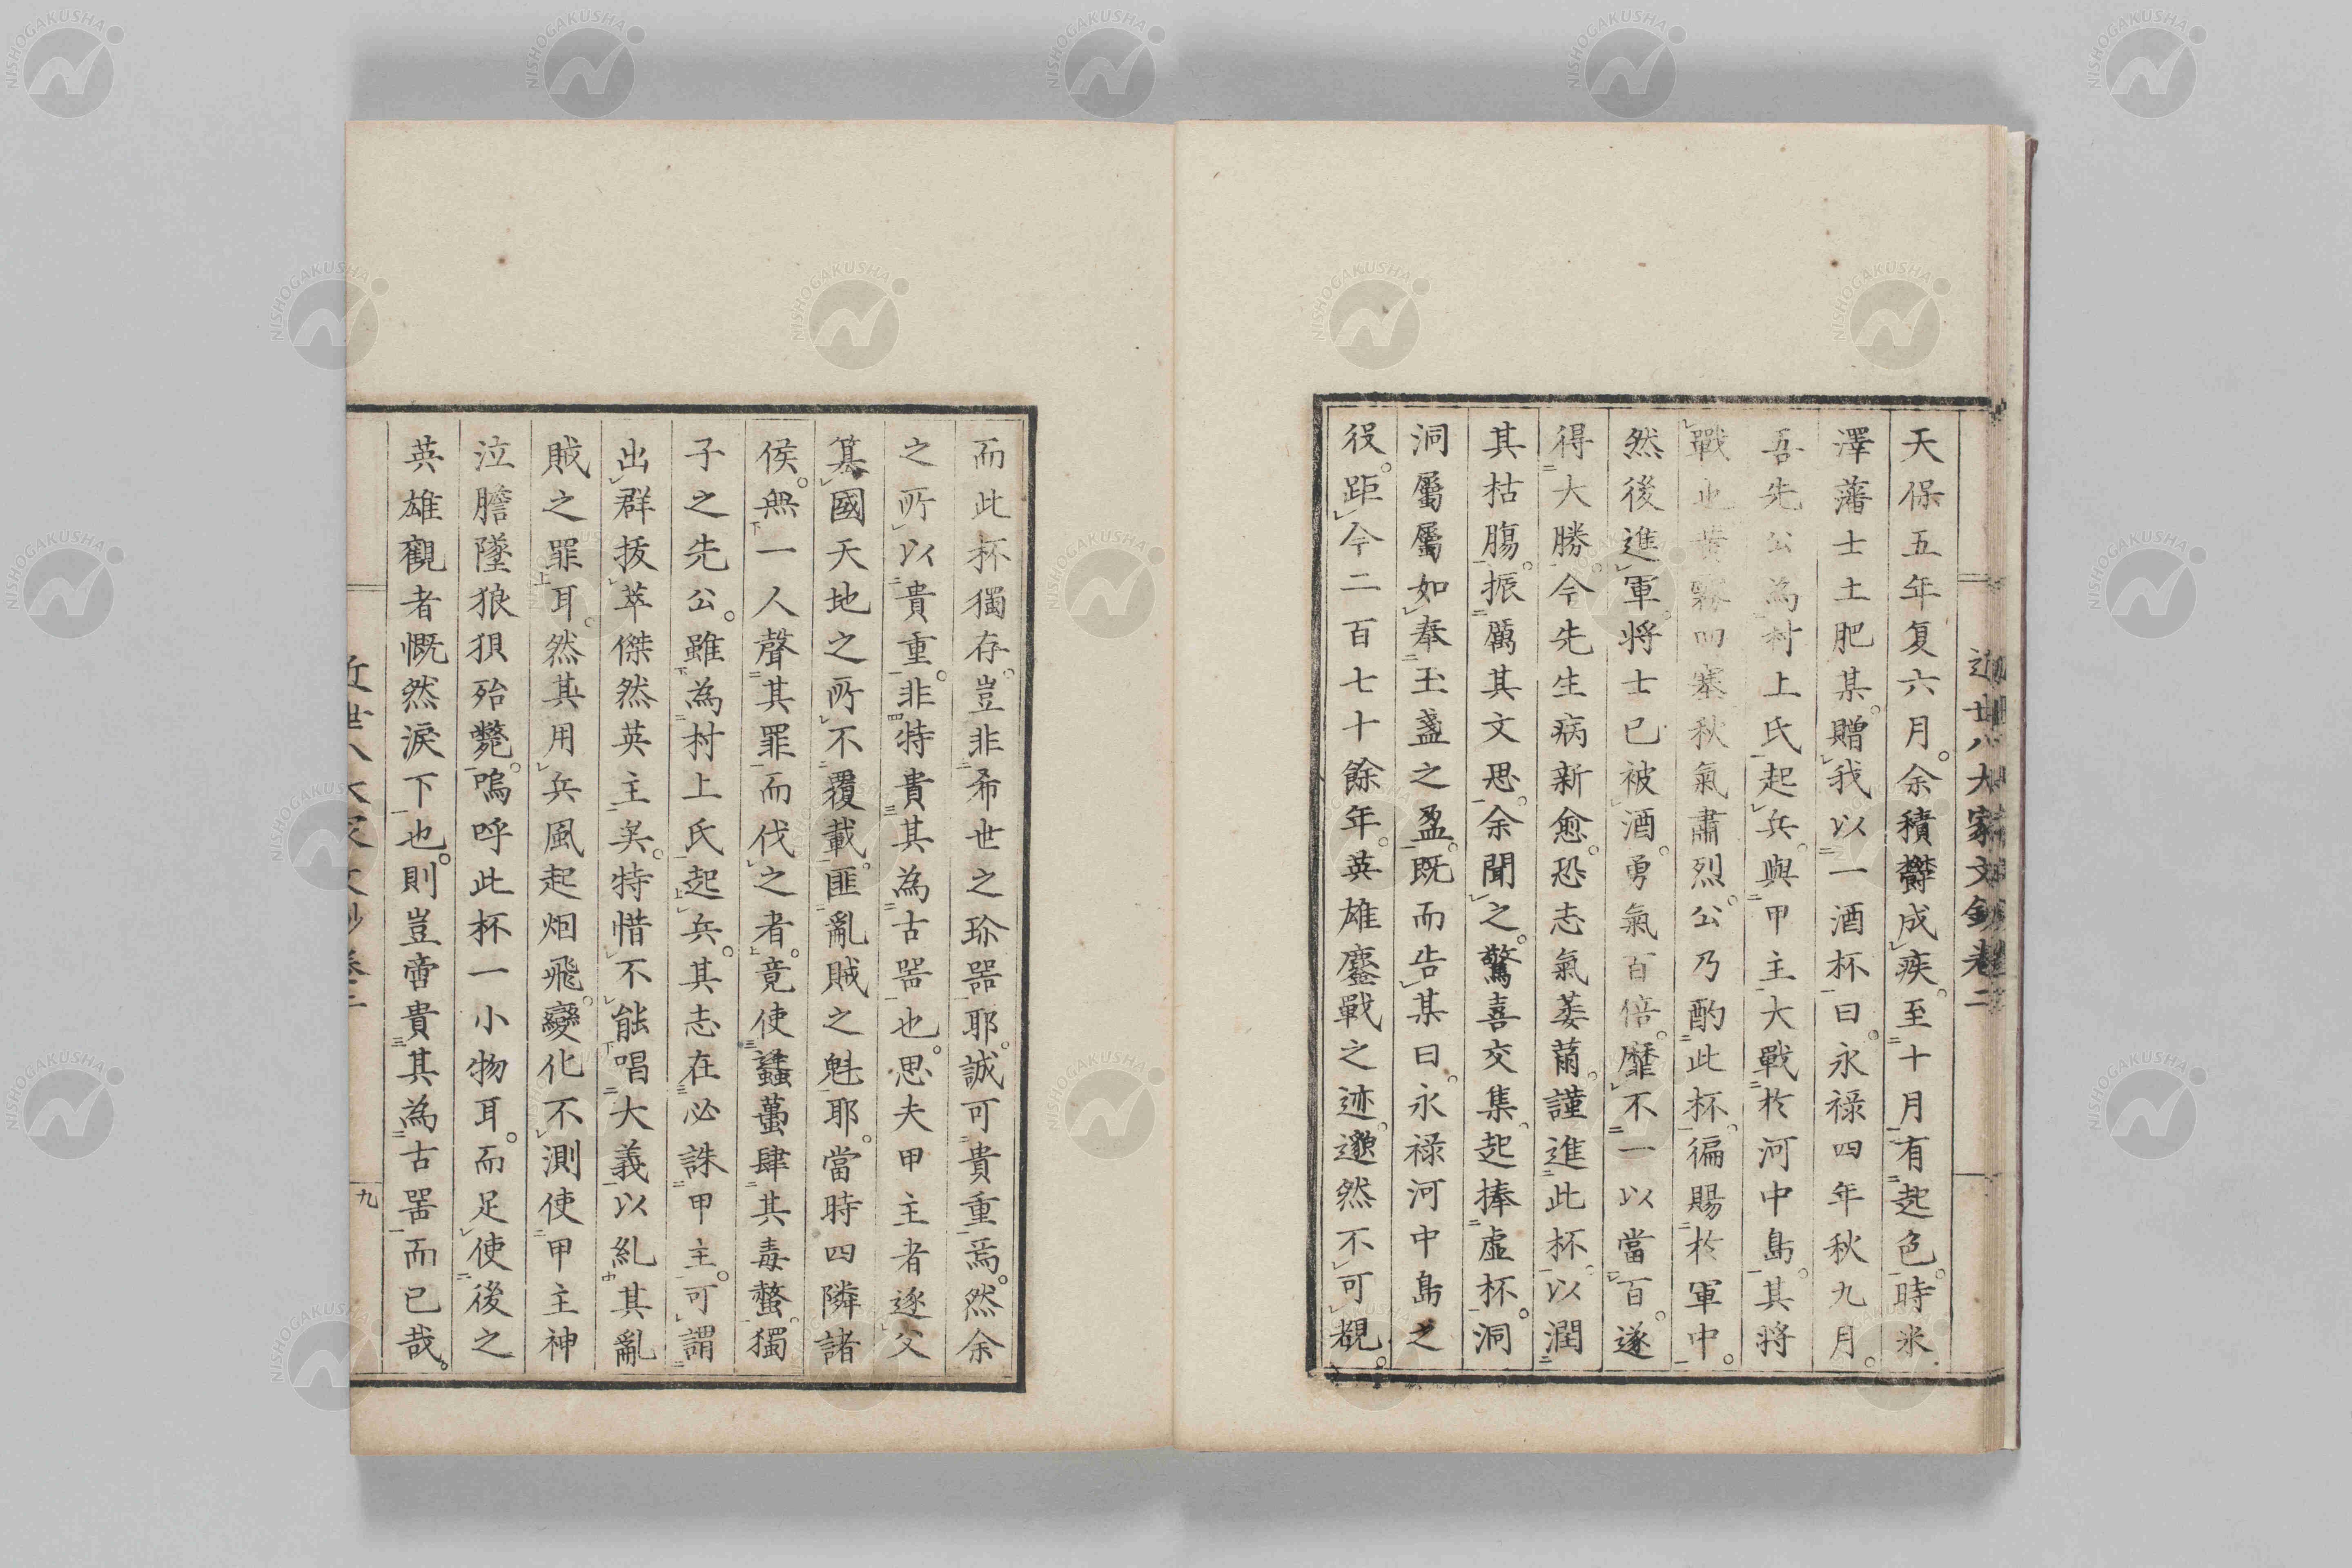 近世八大家文鈔卷二
天保五年复六月。余積欝成疾。至十月有起色。時米
澤藩士土肥某。贈我以一酒杯曰。永禄四年秋九月。
吾先公為村上氏起兵。與甲主大戰於河中島。其將
戰也黄霧四塞秋氣肅烈。公乃酌此杯。徧賜於軍中。
然後進軍。将士已被酒。勇氣百倍。靡不一以當百。遂
得大勝。今先生病新愈。恐志氣萎薾。謹進此杯。以潤
其枯膓。振厲其文思。余聞之。驚喜交集。起捧虚杯。洞
洞屬屬如奉玉盞之盈。既而告某曰。永禄河中島之
役。距今二百七十餘年。英雄鏖戰之迹。邈然不可覩。
而此杯獨存。豈非希世之珎噐耶。誠可貴重焉。然余
之所以貴重。非特貴其為古噐也。思夫甲主者逐父
簒國天地之所不覆載。匪亂賊之魁耶。當時四隣諸
侯。無一人聲其罪而伐之者。竟使蠭蠆肆其毒螫。獨
子之先公。雖為村上氏起兵。其志在必誅甲主。可謂
出群拔萃傑然英主矣。特惜不能唱大義以糺其亂
賊之罪耳。然其用兵風起烟飛。變化不測使甲主神
泣膽墜狼狽殆斃。嗚呼此杯一小物耳。而足使後之
英雄觀者慨然淚下也。則豈啻貴其為古噐而已哉。
近世八大家文鈔卷二
九